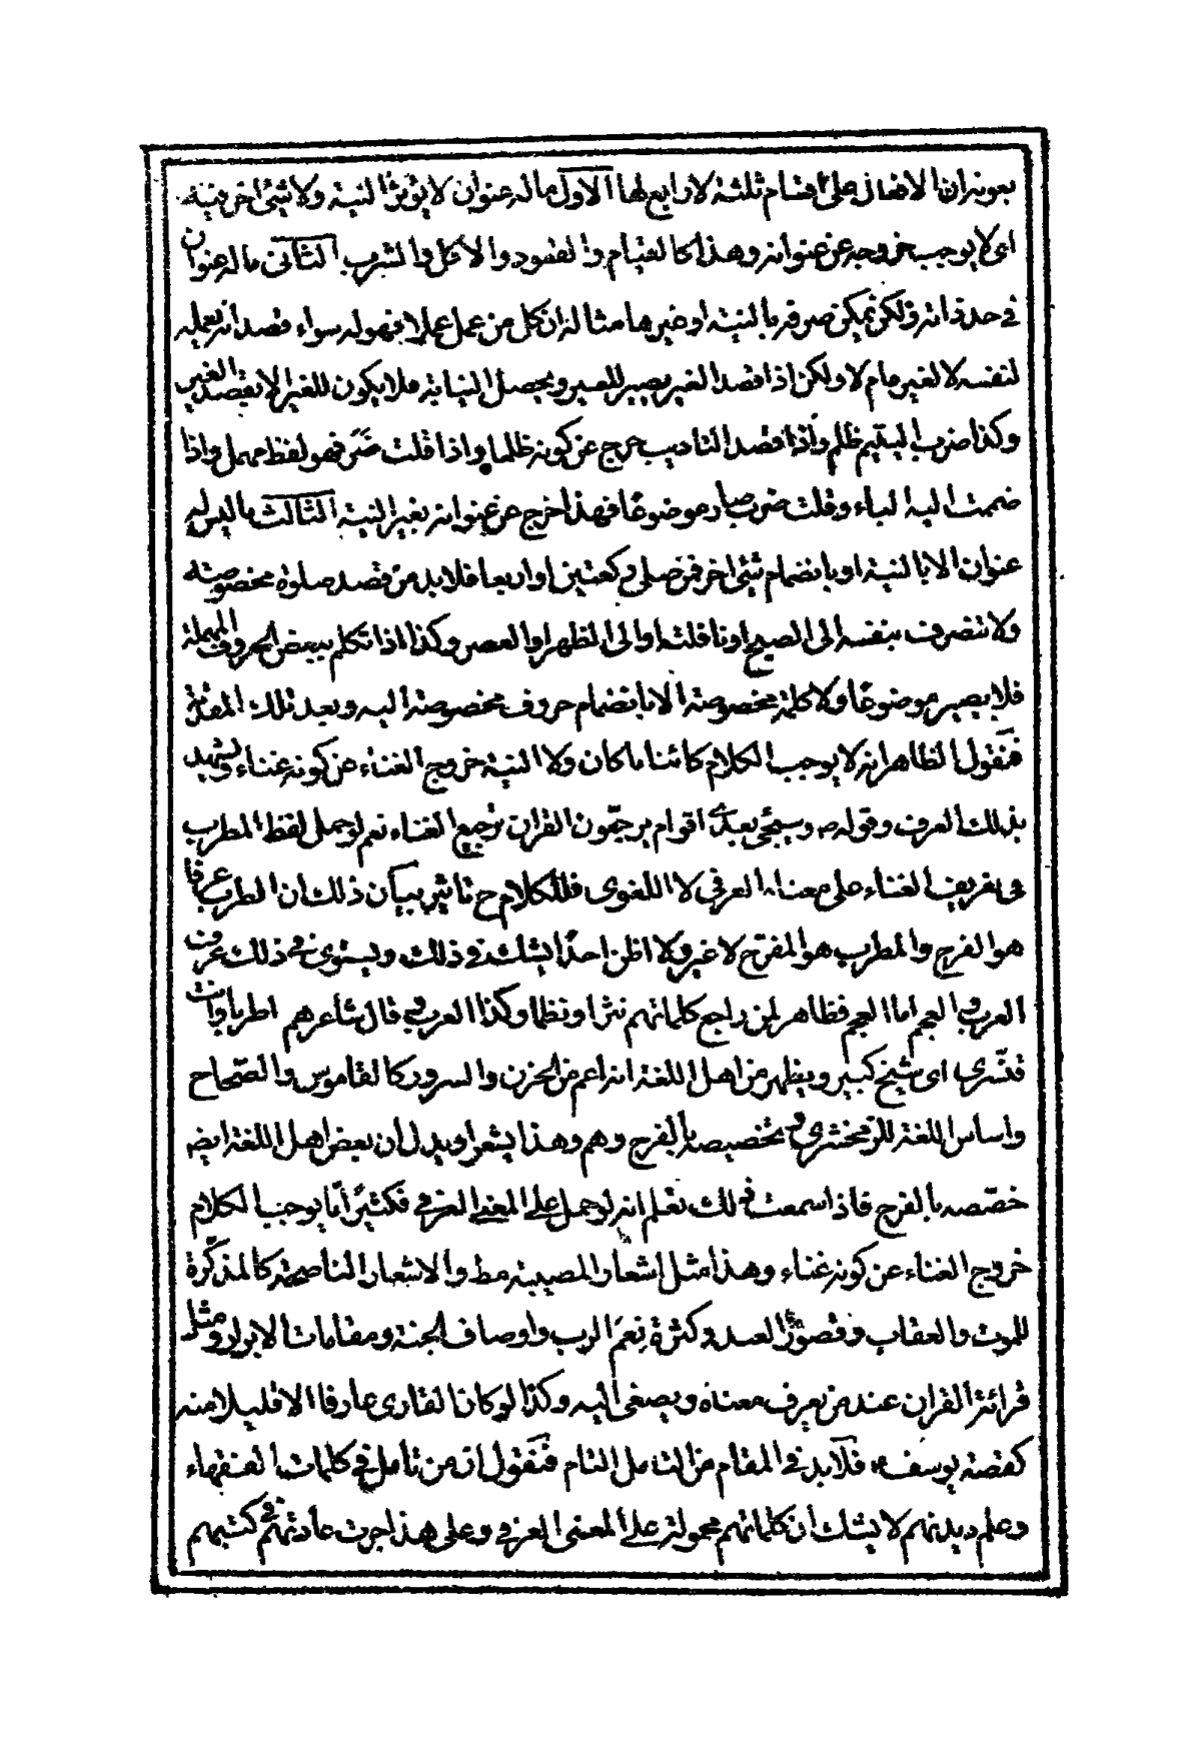 بعونه ان الافعال على اقسام ثلثة لا رابع لها الاول ما له عنوان لا يؤثر النية ولا شئ اخر فيه
اى لا يوجب خروجه عن عنوانه وهذا كالقيام والقعود والاكل والشرب الثانى ما له عنوان
فى حد ذاته ولكن يمكن صرفه بالنية او غيرها مثاله ان كل من عمل عملا فهو له سواء قصد انه يعمله
لنفسه لا لغيره ام لا ولكن اذا قصد الغير يصير للغير ويحصل النيابة فلا يكون للغير الا بقصد الغير
وكذا ضرب اليتيم ظلم واذا قصد التاديب خرج عن كونه ظلما واذا قلت ضَرَ فهو لفظ مهمل واذا
ضممت اليه الباء وقلت ضرب صار موضوعًا فهذا خرج عن عنوانه بغير النية الثالث ما ليس له
عنوان الا بالنية او بانضمام شئ اخر فمن صلى ركعتين او اربعا فلا بد من قصد صلوة مخصوصة
ولا تنصرف بنفسه الى الصبح او نافلته او الى الظهر او العصر وكذا اذا تكلم ببعض الحروف المهملة
فلا يصير موضوعًا ولا كلمة مخصوصة الا بانضمام حروف مخصوصة اليه وبعد تلك المقدمة
فنقول الظاهر انه لا يوجب الكلام كائنا ما كان ولا النية خروج الغناء عن كونه غناء ويشهد
بذلك العرف وقوله ص وسيجئ بعدى اقوام يرجّعون القران ترجيع الغناء نعم لو حمل لفظ المطرب
فى تعريف الغناء على معناه العرفى لا اللغوى فللكلام ح تاثير بيان ذلك ان الطرب عرفا
هو الفرح والمطرب هو المفرح لا غير ولا اظن احدًا يشك فى ذلك ويستوى فى ذلك عرف
العرب والعجم اما العجم فظاهر لمن راجع كلماتهم نثرا ونظما وكذا العرب قال شاعرهم اطربا وانت
قنسّرى اى شيخ كبير ويظهر من اهل اللغة انه اعم من الحزن والسرور كالقاموس والصّحاح
واساس اللغة للزمخشرى وتخصيصه بالفرح وهم وهذا يشعر او يدل ان بعض اهل اللغة ايضه
خصّصه بالفرح فاذا سمعت ذلك تعلم انه لو حمل على المعنى العرفى فكثيرًا ما يوجب الكلام
خروج الغناء عن كونه غناء وهذا مثل اشعار المصيبة مط والاشعار الناصحة كالمذكّرة
للموت والعقاب وقصور العبد وكثرة نِعَم الرب واوصاف الجنة ومقامات الابرار ومثل
قرائة القران عند من يعرف معناه ويصغى اليه وكذا لو كان القارى عارفا الا قليلا منه
كقصة يوسف ع فلا بد فى المقام من التامل التام فنقول ان من تامل فى كلمات الفقهاء
وعلم ديدنهم لا يشك ان كلماتهم محمولة على المعنى العرفى وعلى هذا جرت عادتهم فى كتبهم